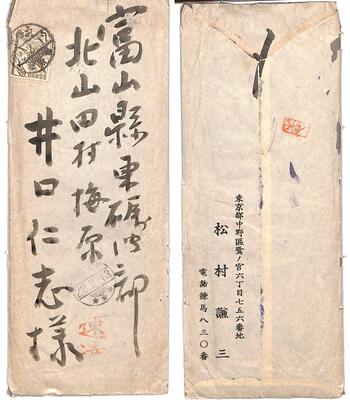 富山縣東礪波郡
北山田村梅原
井口仁志様
速達
東京都中野區鷺ノ宮六丁目七五六番地
松村謙三
電話練馬八三〇番